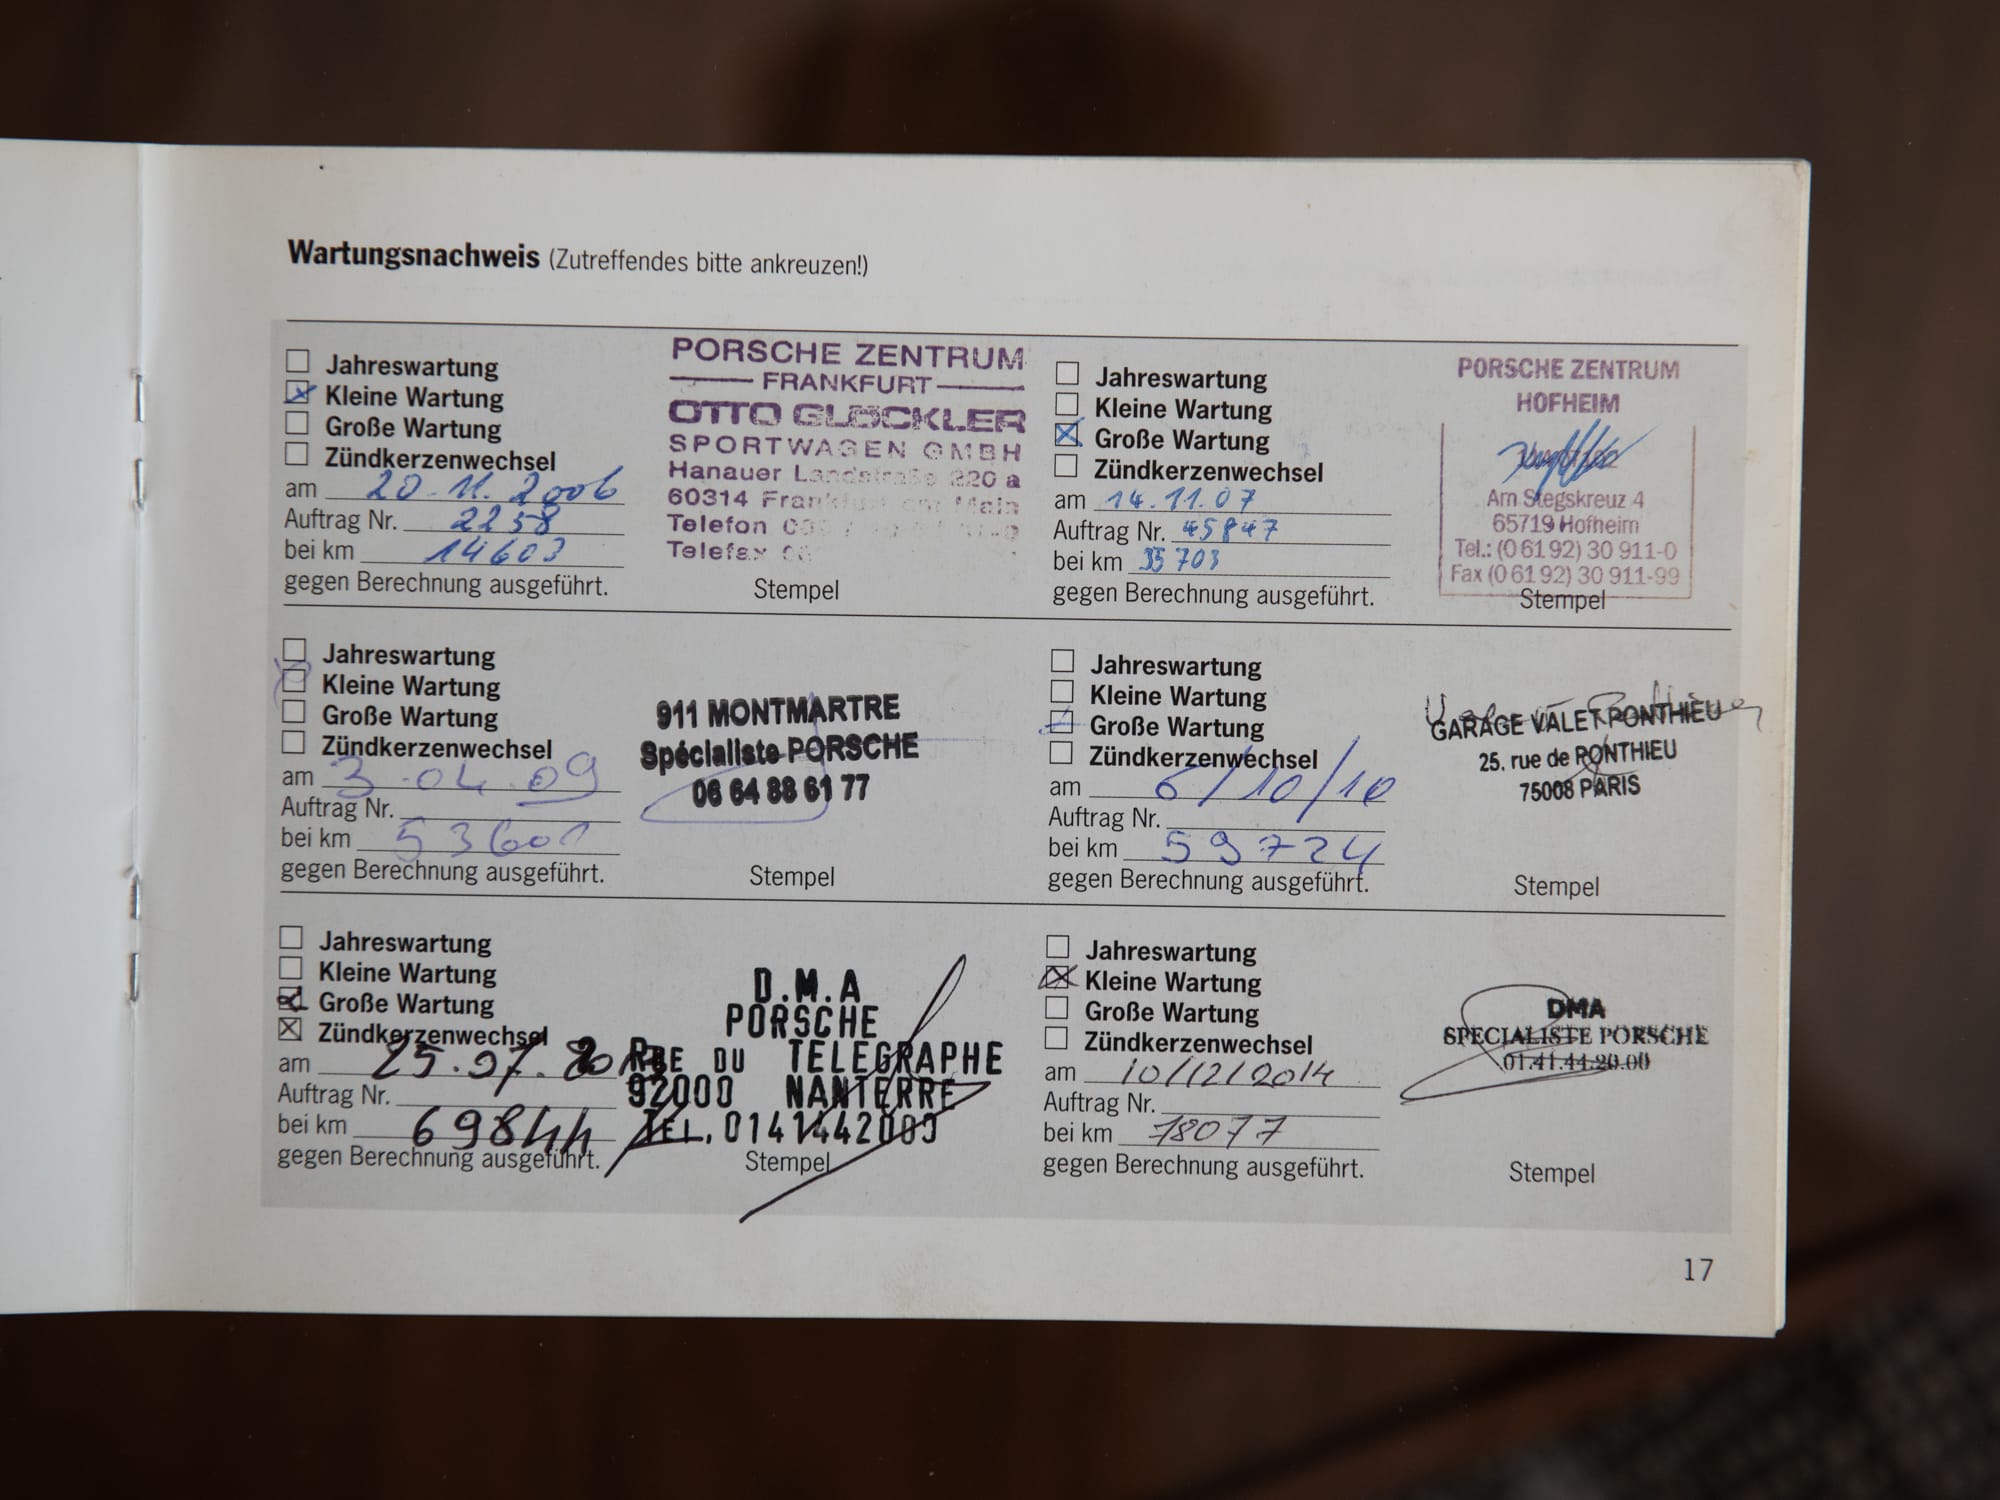 Wartungsnachweis (Zutreffendes bitte ankreuzen!)
Jahreswartung
Kleine Wartung
Große Wartung
Zündkerzenwechsel
am 20.11.2006
Auftrag Nr. 2258
bei km 14603
gegen Berechnung ausgeführt.
PORSCHE ZENTRUM
FRANKFURT
OTTO GLÖCKLER
SPORTWAGEN GMBH
Hanauer Landstraße 220 a
60314 Frankfurt am Main
Telefon
Telefax
Stempel
Jahreswartung
Kleine Wartung
Große Wartung
Zündkerzenwechsel
am 14.11.07
Auftrag Nr. 45847
bei km 35703
gegen Berechnung ausgeführt.
PORSCHE ZENTRUM
HOFHEIM
Am Stegskreuz 4
65719 Hofheim
Tel.: (0 61 92) 30 911-0
Fax (0 61 92) 30 911-99
Stempel
Jahreswartung
Kleine Wartung
Große Wartung
Zündkerzenwechsel
am 3.04.09
Auftrag Nr.
bei km 53601
gegen Berechnung ausgeführt.
911 MONTMARTRE
Spécialiste PORSCHE
06 64 88 61 77
Stempel
Jahreswartung
Kleine Wartung
Große Wartung
Zündkerzenwechsel
am 6/10/10
Auftrag Nr.
bei km 59724
gegen Berechnung ausgeführt.
GARAGE VALET PONTHIEU
25, rue de PONTHIEU
75008 PARIS
Stempel
Jahreswartung
Kleine Wartung
Große Wartung
Zündkerzenwechsel
am 25.07.
Auftrag Nr.
bei km 69844
gegen Berechnung ausgeführt.
D.M.A
PORSCHE
2 RUE DU TELEGRAPHE
92000 NANTERRE
TEL. 0141442000
Stempel
Jahreswartung
Kleine Wartung
Große Wartung
Zündkerzenwechsel
am 10/12/2014
Auftrag Nr.
bei km 78077
gegen Berechnung ausgeführt.
DMA
SPECIALISTE PORSCHE
01.41.44.20.00
Stempel
17